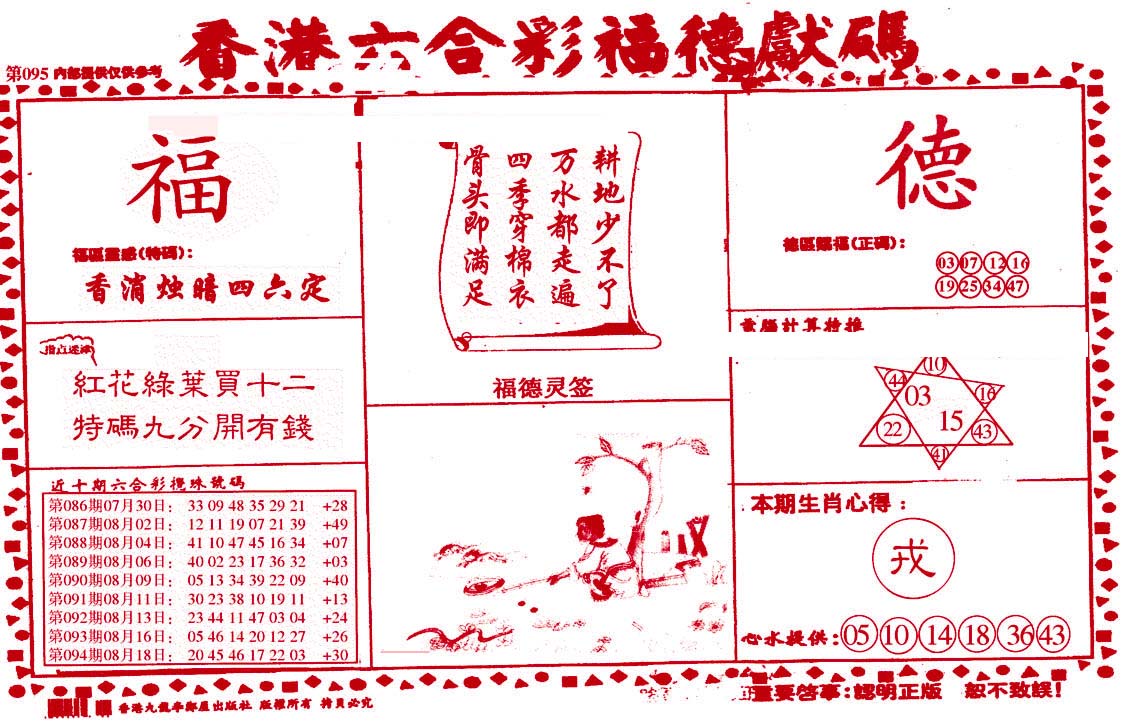 香港六合彩福德獻碼
第095 內部提供仅供參考
福
福區靈感(特碼):
香消烛暗四六定
指点迷津
紅花綠葉買十二
特碼九分開有錢
近十期六合彩攪珠號碼
第086期07月30日: 33 09 48 35 29 21 +28
第087期08月02日: 12 11 19 07 21 39 +49
第088期08月04日: 41 10 47 45 16 34 +07
第089期08月06日: 40 02 23 17 36 32 +03
第090期08月09日: 05 13 34 39 22 09 +40
第091期08月11日: 30 23 38 10 19 11 +13
第092期08月13日: 23 44 11 47 03 04 +24
第093期08月16日: 05 46 14 20 12 27 +26
第094期08月18日: 20 45 46 17 22 03 +30
耕地少不了
万水都走遍
四季穿棉衣
骨头即满足
福德灵签
德
德區賜福(正碼):
03 07 12 16
19 25 34 47
電腦計算特推
10
44 03 16
22 15 43
41
本期生肖心得:
戎
心水提供: 05 10 14 18 36 43
重要啓事:認明正版 恕不致誤!
版權所有 拷貝必究